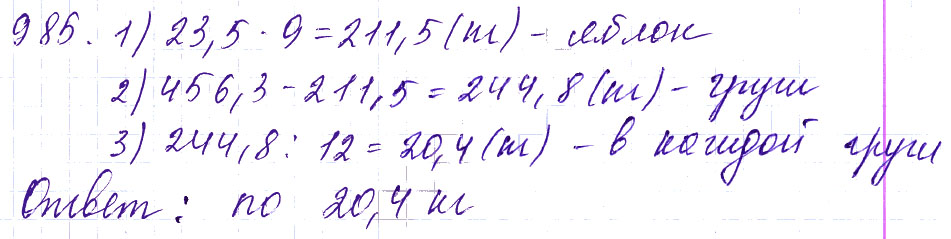 985. 1) 23,5 · 9 = 211,5 (кг) - яблок
2) 456,3 - 211,5 = 244,8 (кг) - груш
3) 244,8 : 12 = 20,4 (кг) - в каждой груш
Ответ: по 20,4 кг